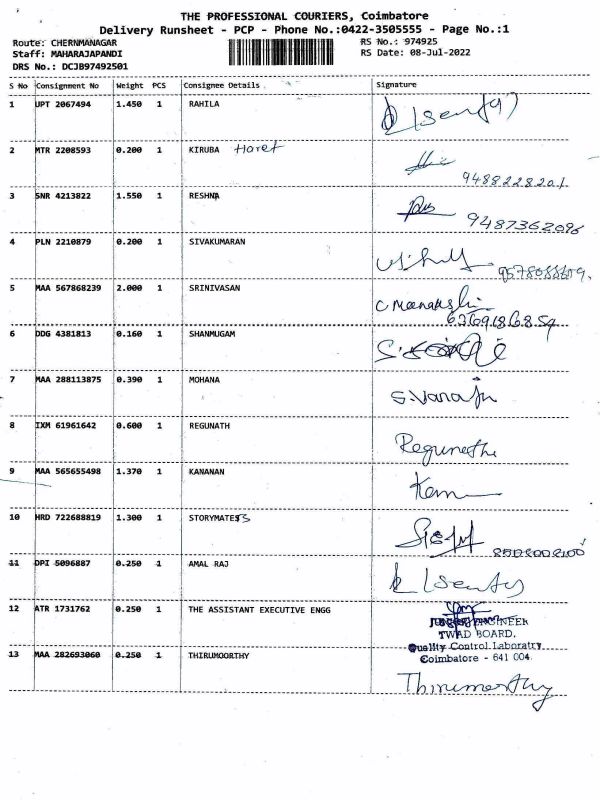 THE PROFESSIONAL COURIERS, Coimbatore
Delivery Runsheet - PCP - Phone No.:0422-3505555 - Page No.:1
Route: CHERNMANAGAR RS No.: 974925
Staff: MAHARAJAPANDI RS Date: 08-Jul-2022
DRS No.: DCJB97492501
S No Consignment No Weight PCS Consignee Details Signature
1 UPT 2067494 1.450 1 RAHILA
2 MTR 2208593 0.200 1 KIRUBA
9488228201
3 SNR 4213822 1.550 1 RESHNA
9487362096
4 PLN 2210879 0.200 1 SIVAKUMARAN
5 MAA 567868239 2.000 1 SRINIVASAN
6 DDG 4381813 0.160 1 SHANMUGAM
7 MAA 288113875 0.390 1 MOHANA
8 IXM 61961642 0.600 1 REGUNATH
Regunath
9 MAA 565655498 1.370 1 KANANAN
10 HRD 722688819 1.300 1 STORYMATES
11 DPI 5096887 0.250 1 AMAL RAJ
12 ATR 1731762 0.250 1 THE ASSISTANT EXECUTIVE ENGG
ENGINEER
TWAD BOARD,
Quality Control Laboratry
Coimbatore - 641 004.
13 MAA 282693060 0.250 1 THIRUMOORTHY
Thirumorthy